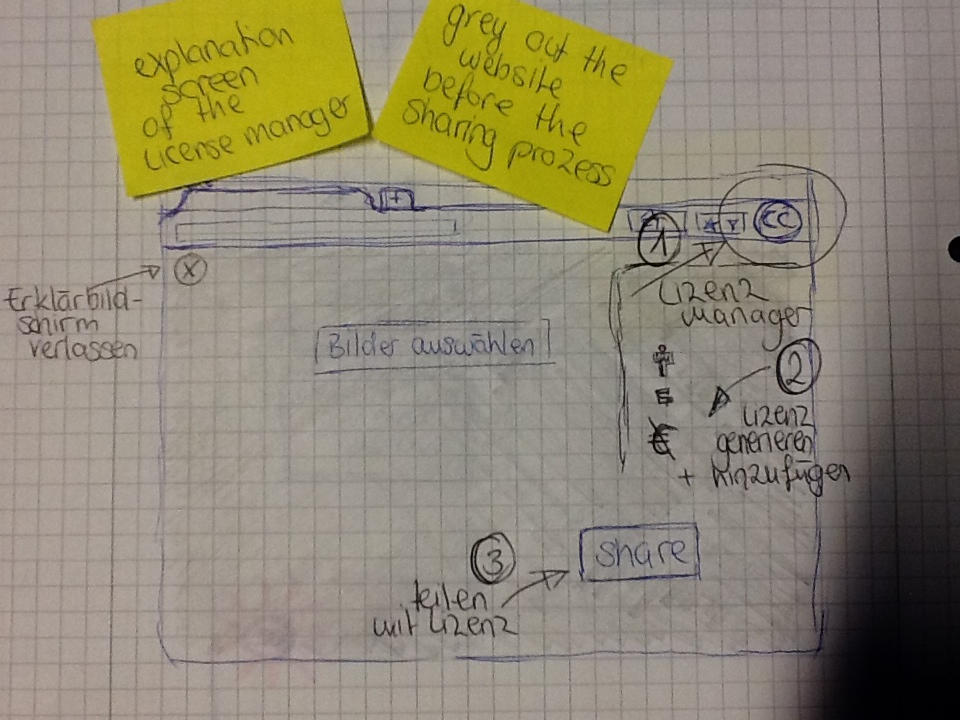 explanation
screen
of the
License manager
grey out the
website
before the
sharing prozess
+
CC
1
Lizenz
Manager
X
Erklärbild-
schirm
verlassen
Bilder auswählen
2
Lizenz
generieren
+ hinzufügen
€
3
teilen
mit Lizenz
share